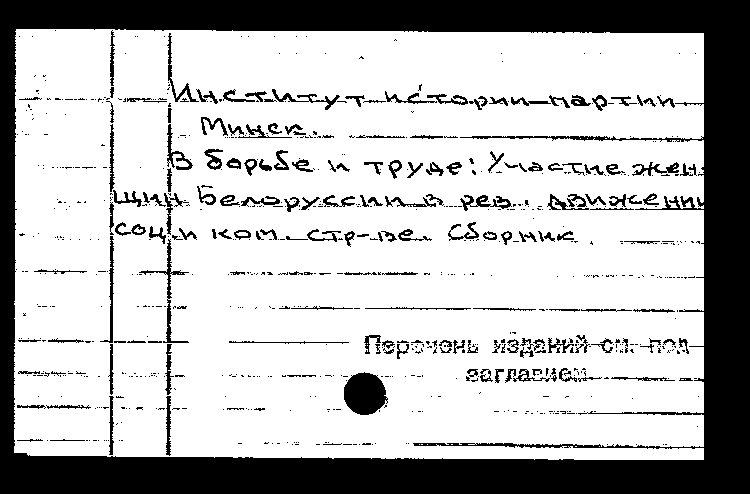 Институт истории партии
Минск.
В борьбе и труде: Участие жен-
щин Белоруссии в рев. движении
соц. и ком. стр-ве. Сборник.
Перечень изданий см. под
заглавием